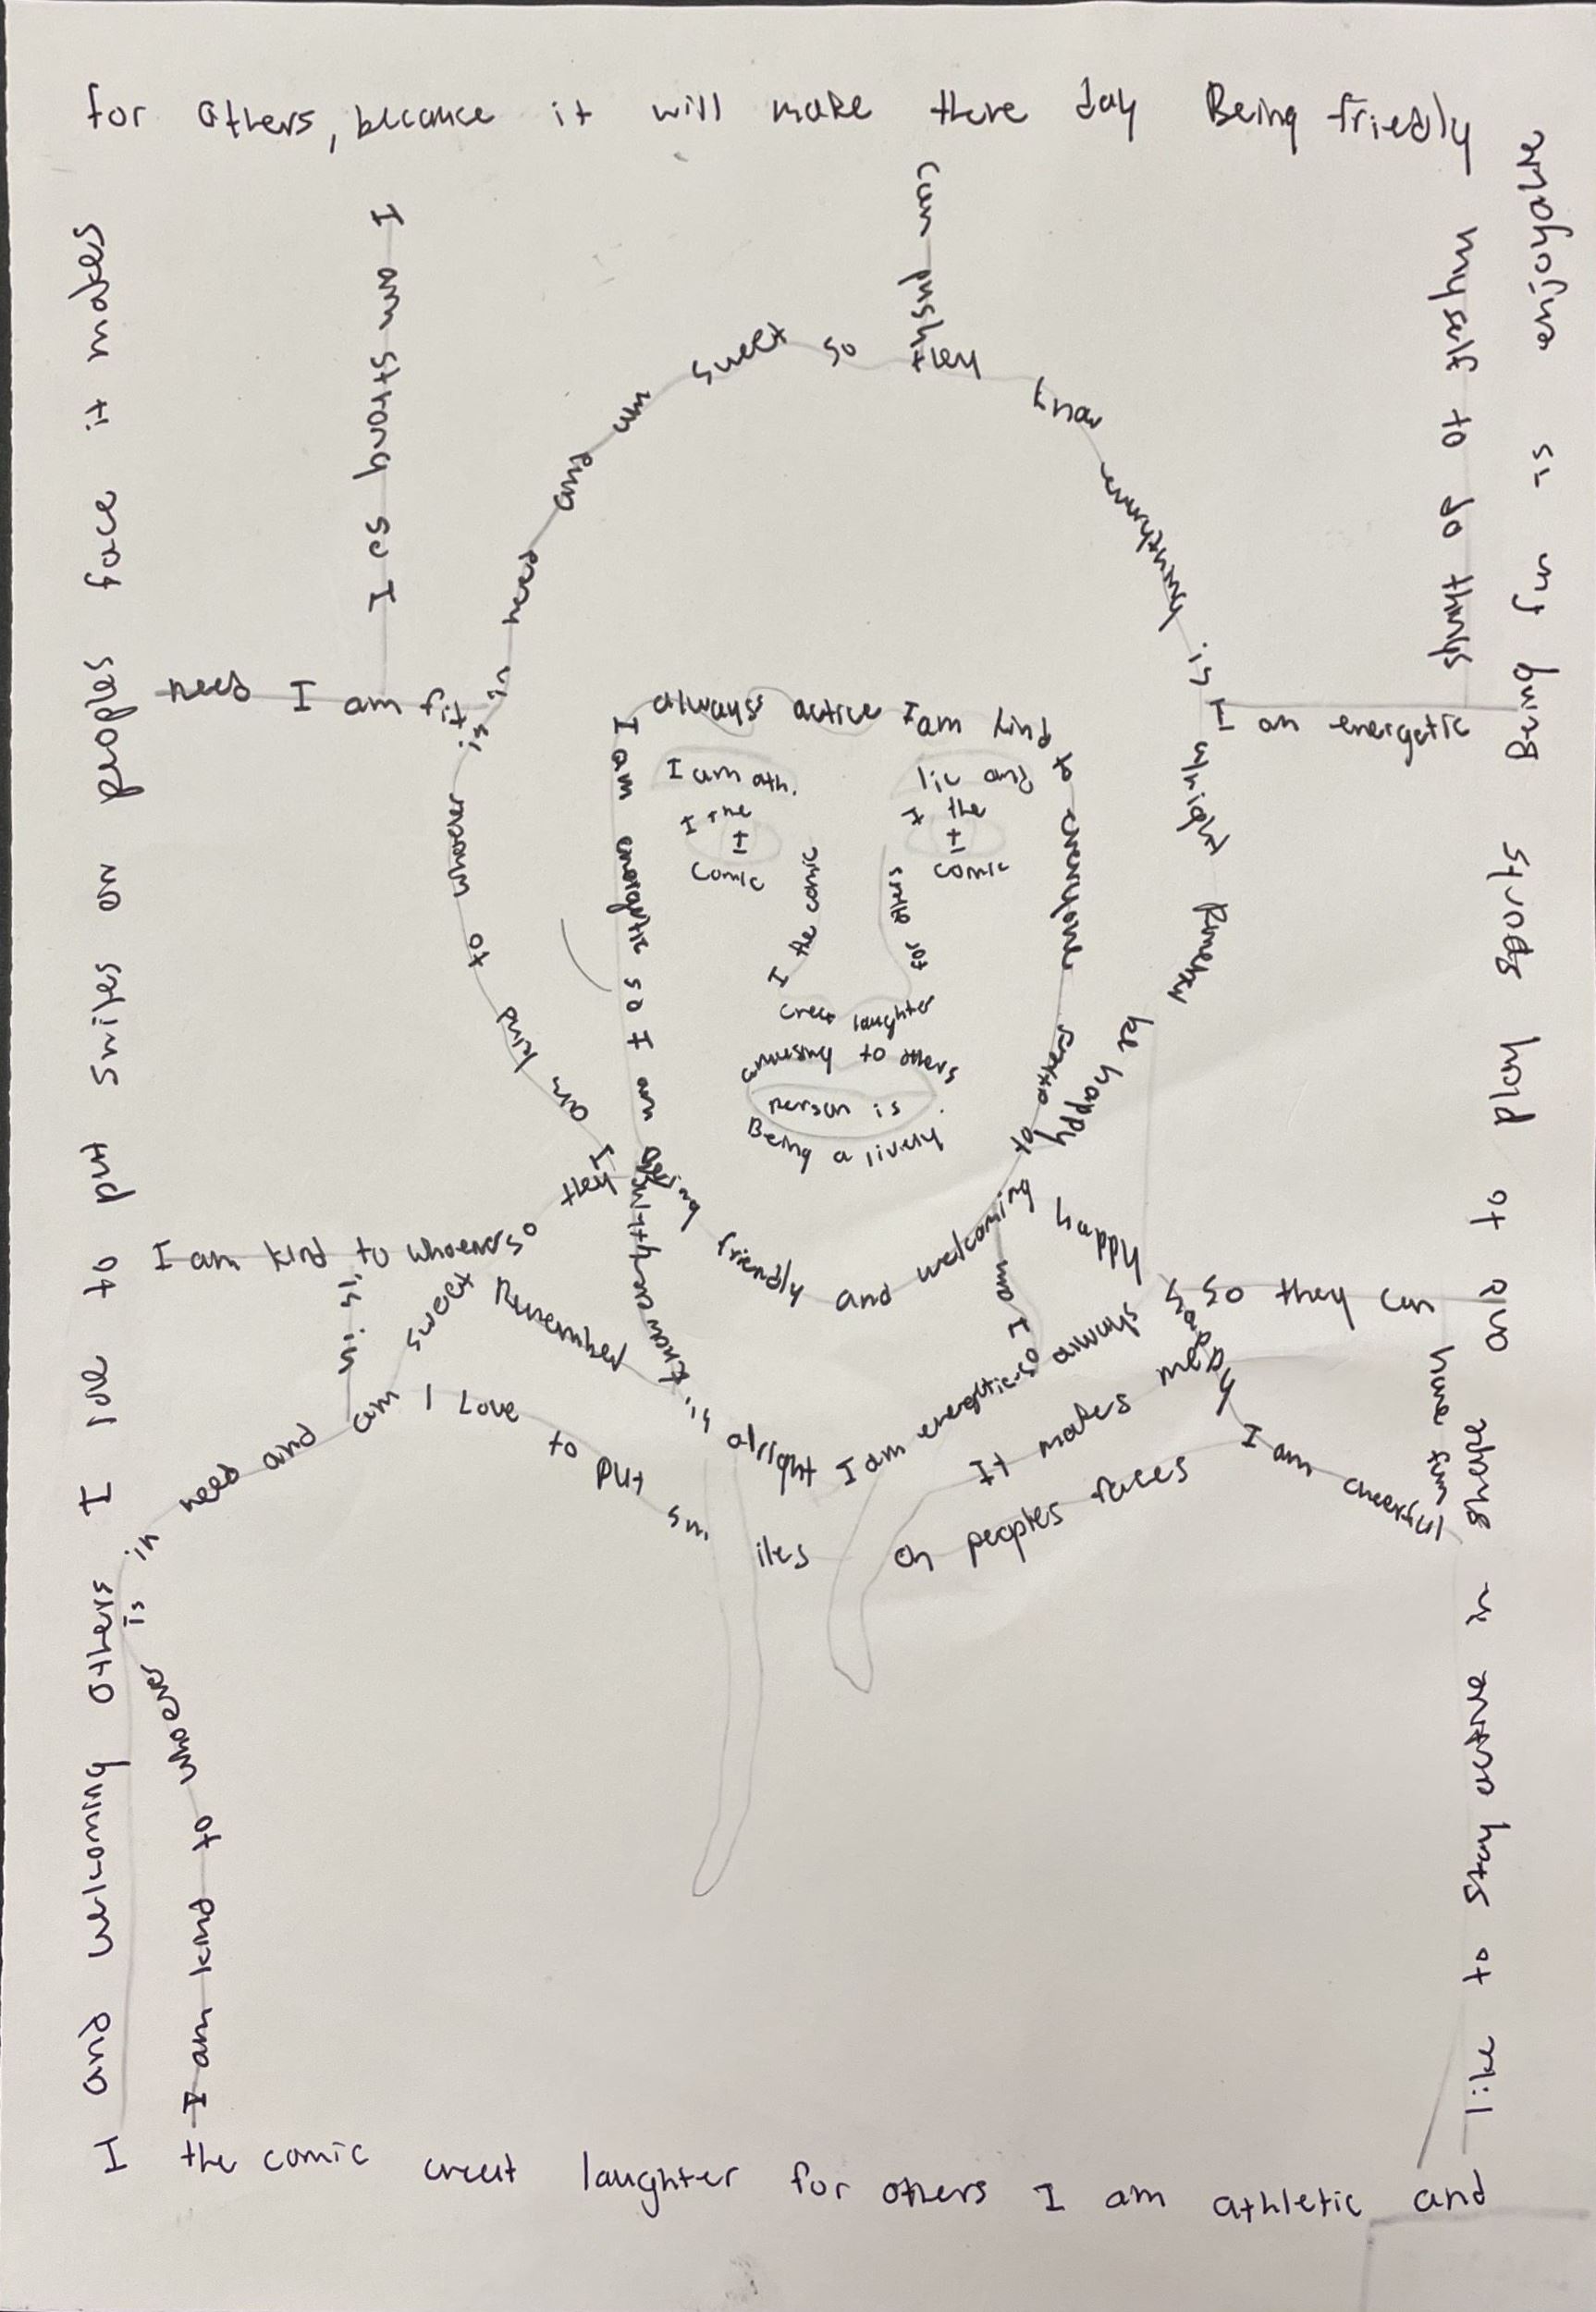 for others, because it will make there day Being friedly
I and welcoming others I love to put smiles on peoples face it makes
Being fun is enjoyable
like to stay active in shape and to play sports
I the comic creat laughter for others I am athletic and
I am strong so I
can push
myself to do things
need I am fit
I an energetic
I am kind to whoever is in need and am sweet so they know everything is alright Remember be happy
I always active I am kind to everywhere
others to
I am energetic so I am
I am ath.
lic and
I the
I
comic
I the
I
comic
I the comic
for others
creat laughter
amusing to others
person is
Being a lively
being friendly and welcoming
they
know everything is alright
I am kind to whoever so
is in
I am kind to whoever is in need and am sweet
Remember
I am energetic so always
I am
happy
happy
so they can
have fun
I love to put smiles on peoples faces
It makes me
I am cheerful